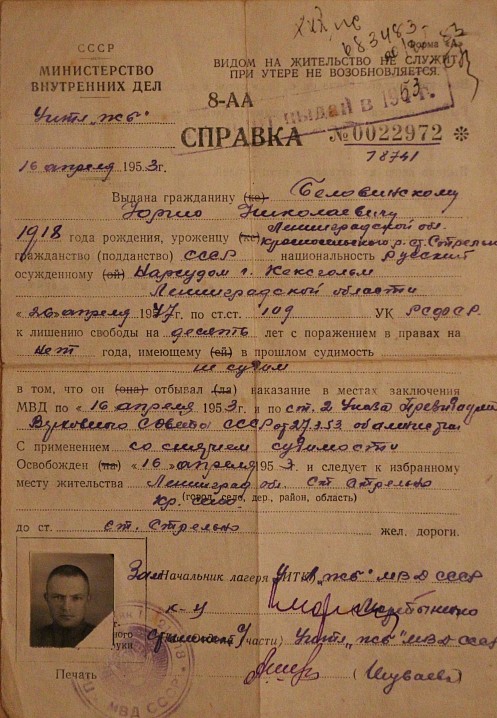 СССР
МИНИСТЕРСТВО
ВНУТРЕННИХ ДЕЛ
Форма "А"
ВИДОМ НА ЖИТЕЛЬСТВО НЕ СЛУЖИТ
ПРИ УТЕРЕ НЕ ВОЗОБНОВЛЯЕТСЯ.
8-АА
выдан в 1953 г.
СПРАВКА №0022972 *
18741
16 апреля 1953г.
Выдана гражданину (ке) Беловинскому
Юрию Николаевичу
1918 года рождения, уроженцу (ке) Ленинградской обл.
Красносельского р. ст. Стрельна
гражданство (подданство) СССР национальность Русский
осужденному (ой) Нарсудом г. Кексгольм
Ленинградской области
« 26 » апреля 1947г. по ст.ст. 109 УК РСФСР.
к лишению свободы на десять лет с поражением в правах на
нет года, имеющему (ей) в прошлом судимость
не судим
в том, что он (она) отбывал (ла) наказание в местах заключения
МВД по « 16 апреля 1953 г. и по ст. 2 Указа Президиума
Верховного Совета СССР от 27.3.53 об амнистии
С применением со снятием судимости
Освобожден (на) « 16 » апреля 1953 г. и следует к избранному
месту жительства Ленинград обл. ст Стрельно
(город, село, дер., район, область)
до ст. ст. Стрельно жел. дороги.
Зам Начальник лагеря (ИТК) "ЖЬ" МВД СССР
части) "ЖЬ" МВД СССР
Печать (Шуваев)
МВД СССР